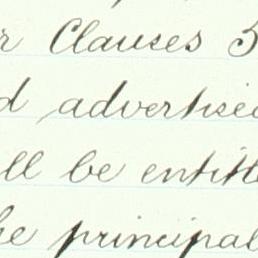 r Clauses 5
d advertised
ll be entitle
he principal